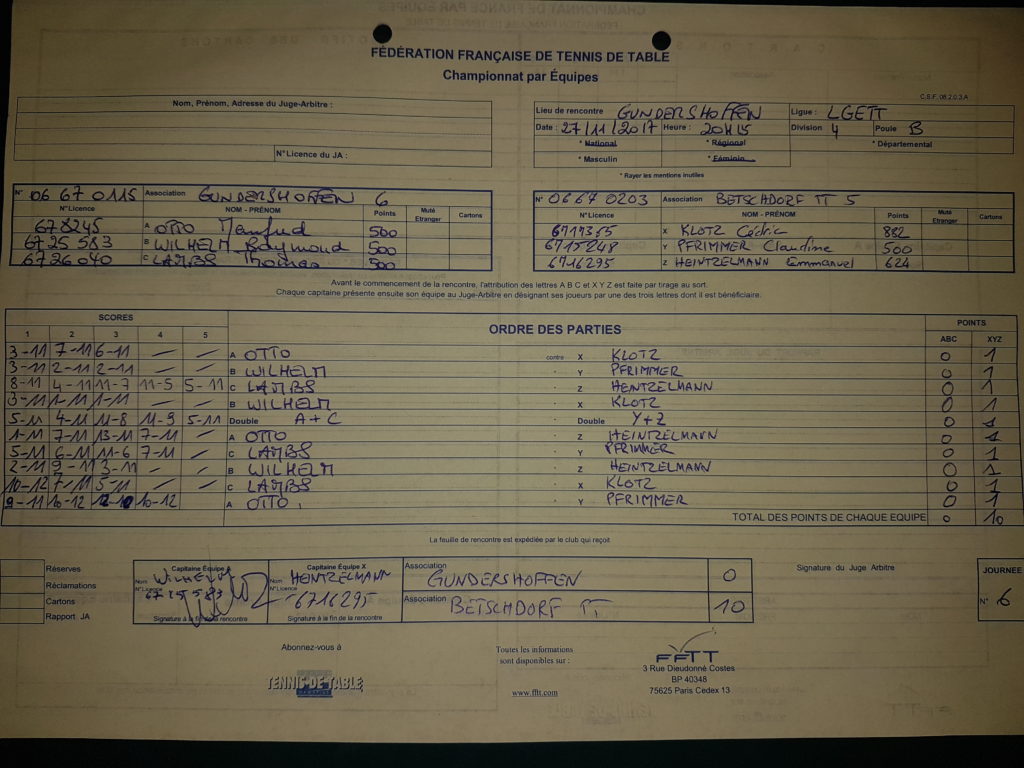 FÉDÉRATION FRANÇAISE DE TENNIS DE TABLE
Championnat par Équipes
C.S.F. 08.2.0.3.A
Nom, Prénom, Adresse du Juge-Arbitre :
N°Licence du JA :
Lieu de rencontre GUNDERSHOFFEN Ligue : LGETT
Date : 27/11/2017 Heure : 20H15 Division 4 Poule B
* National * Régional * Départemental
* Masculin * Féminin
* Rayer les mentions inutiles
N° 06 67 0115 Association GUNDERSHOFFEN 6
N°Licence NOM - PRÉNOM Points Muté Etranger Cartons
678245 A OTTO Manfred 500
6725583 B WILHELM Raymond 500
6726040 C LAMBS Thomas 500
N° 0667 0203 Association BETSCHDORF TT 5
N°Licence NOM - PRÉNOM Points Muté Etranger Cartons
6717355 X KLOTZ Cédric 882
6715248 Y PFRIMMER Claudine 500
6716295 Z HEINTZELMANN Emmanuel 624
Avant le commencement de la rencontre, l'attribution des lettres A B C et X Y Z est faite par tirage au sort.
Chaque capitaine présente ensuite son équipe au Juge-Arbitre en désignant ses joueurs par une des trois lettres dont il est bénéficiaire.
SCORES ORDRE DES PARTIES POINTS
1 2 3 4 5 ABC XYZ
3-11 7-11 6-11 — — A OTTO contre X KLOTZ 0 1
3-11 2-11 2-11 — — B WILHELM " Y PFRIMMER 0 1
8-11 4-11 11-7 11-5 5-11 C LAMBS " Z HEINTZELMANN 0 1
3-11 1-11 1-11 — — B WILHELM " X KLOTZ 0 1
5-11 4-11 11-8 11-9 5-11 Double A+C " Double Y+Z 0 1
1-11 7-11 13-11 7-11 — A OTTO " Z HEINTZELMANN 0 1
5-11 6-11 11-6 7-11 — C LAMBS " Y PFRIMMER 0 1
2-11 9-11 3-11 — — B WILHELM " Z HEINTZELMANN 0 1
10-12 7-11 5-11 — — C LAMBS " X KLOTZ 0 1
9-11 10-12 12-10 10-12 A OTTO " Y PFRIMMER 0 1
TOTAL DES POINTS DE CHAQUE EQUIPE 0 10
La feuille de rencontre est expédiée par le club qui reçoit
Réserves
Réclamations
Cartons
Rapport JA
Capitaine Équipe A
Nom WILHELM
N°Licence 6725583
Signature à la fin de la rencontre
Capitaine Équipe X
Nom HEINTZELMANN
N°Licence 6716295
Signature à la fin de la rencontre
Association GUNDERSHOFFEN 0
Association BETSCHDORF TT 10
Signature du Juge Arbitre
JOURNEE
N° 6
Abonnez-vous à
TENNIS DE TABLE
Toutes les informations
sont disponibles sur :
www.fftt.com
FFTT
3 Rue Dieudonné Costes
BP 40348
75625 Paris Cedex 13